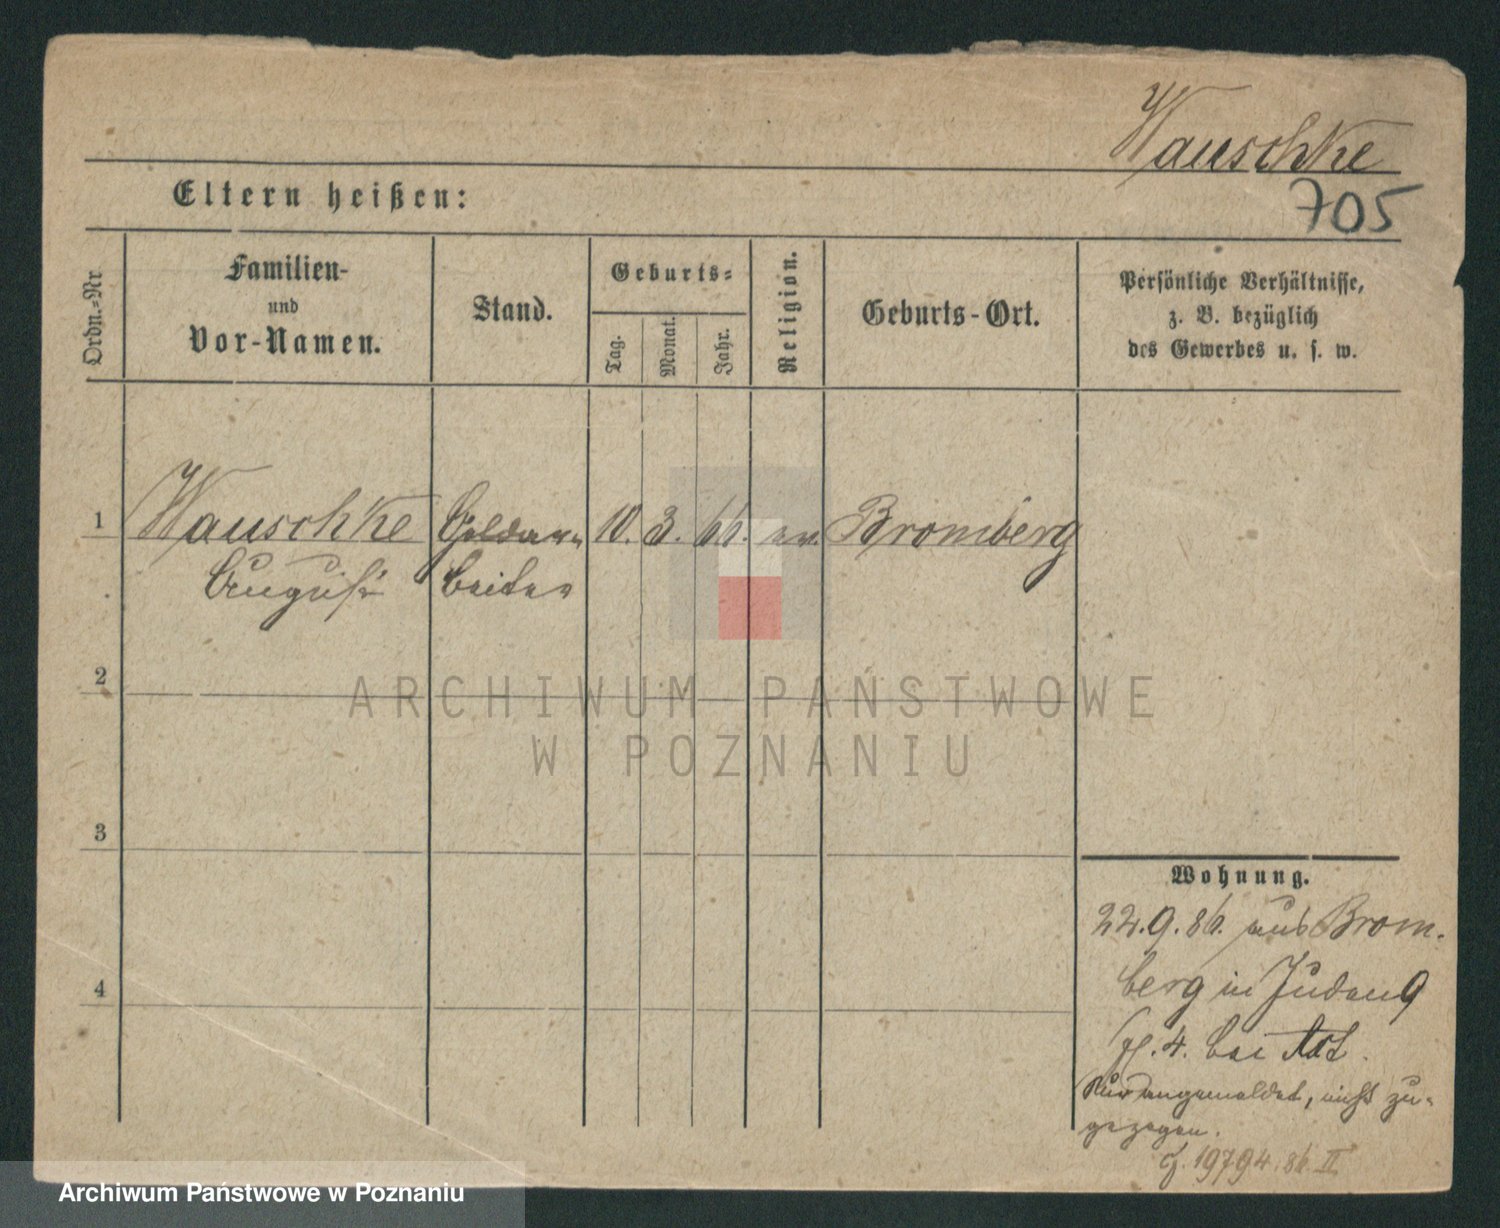 Wauschke
Eltern heißen:
705
Ordn.-Nr
Familien-
und
Vor-Namen.
Stand.
Geburts-
Tag.
Monat.
Jahr.
Religion.
Geburts-Ort.
Persönliche Verhältnisse,
z. B. bezüglich
des Gewerbes u. s. w.
1 Wauschke Goldar- 10. 3. 66. ev. Bromberg
August beiter
2
ARCHIWUM PAŃSTWOWE
W POZNANIU
3
4
Wohnung.
22.9.86. aus Brom-
berg in Juden
4. bei
Nur angemeldet, nicht zu-
gezogen.
19794.86.II
Archiwum Państwowe w Poznaniu